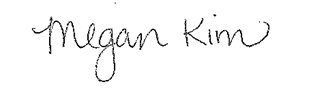 Megan Kim